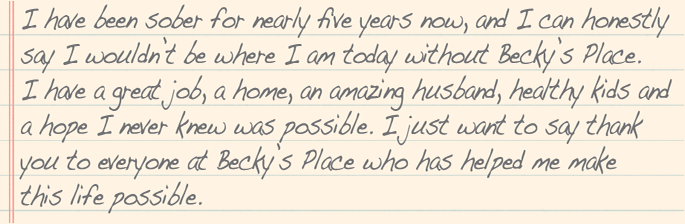 I have been sober for nearly five years now, and I can honestly
say I wouldn't be where I am today without Becky's Place.
I have a great job, a home, an amazing husband, healthy kids and
a hope I never knew was possible. I just want to say thank
you to everyone at Becky's Place who has helped me make
this life possible.